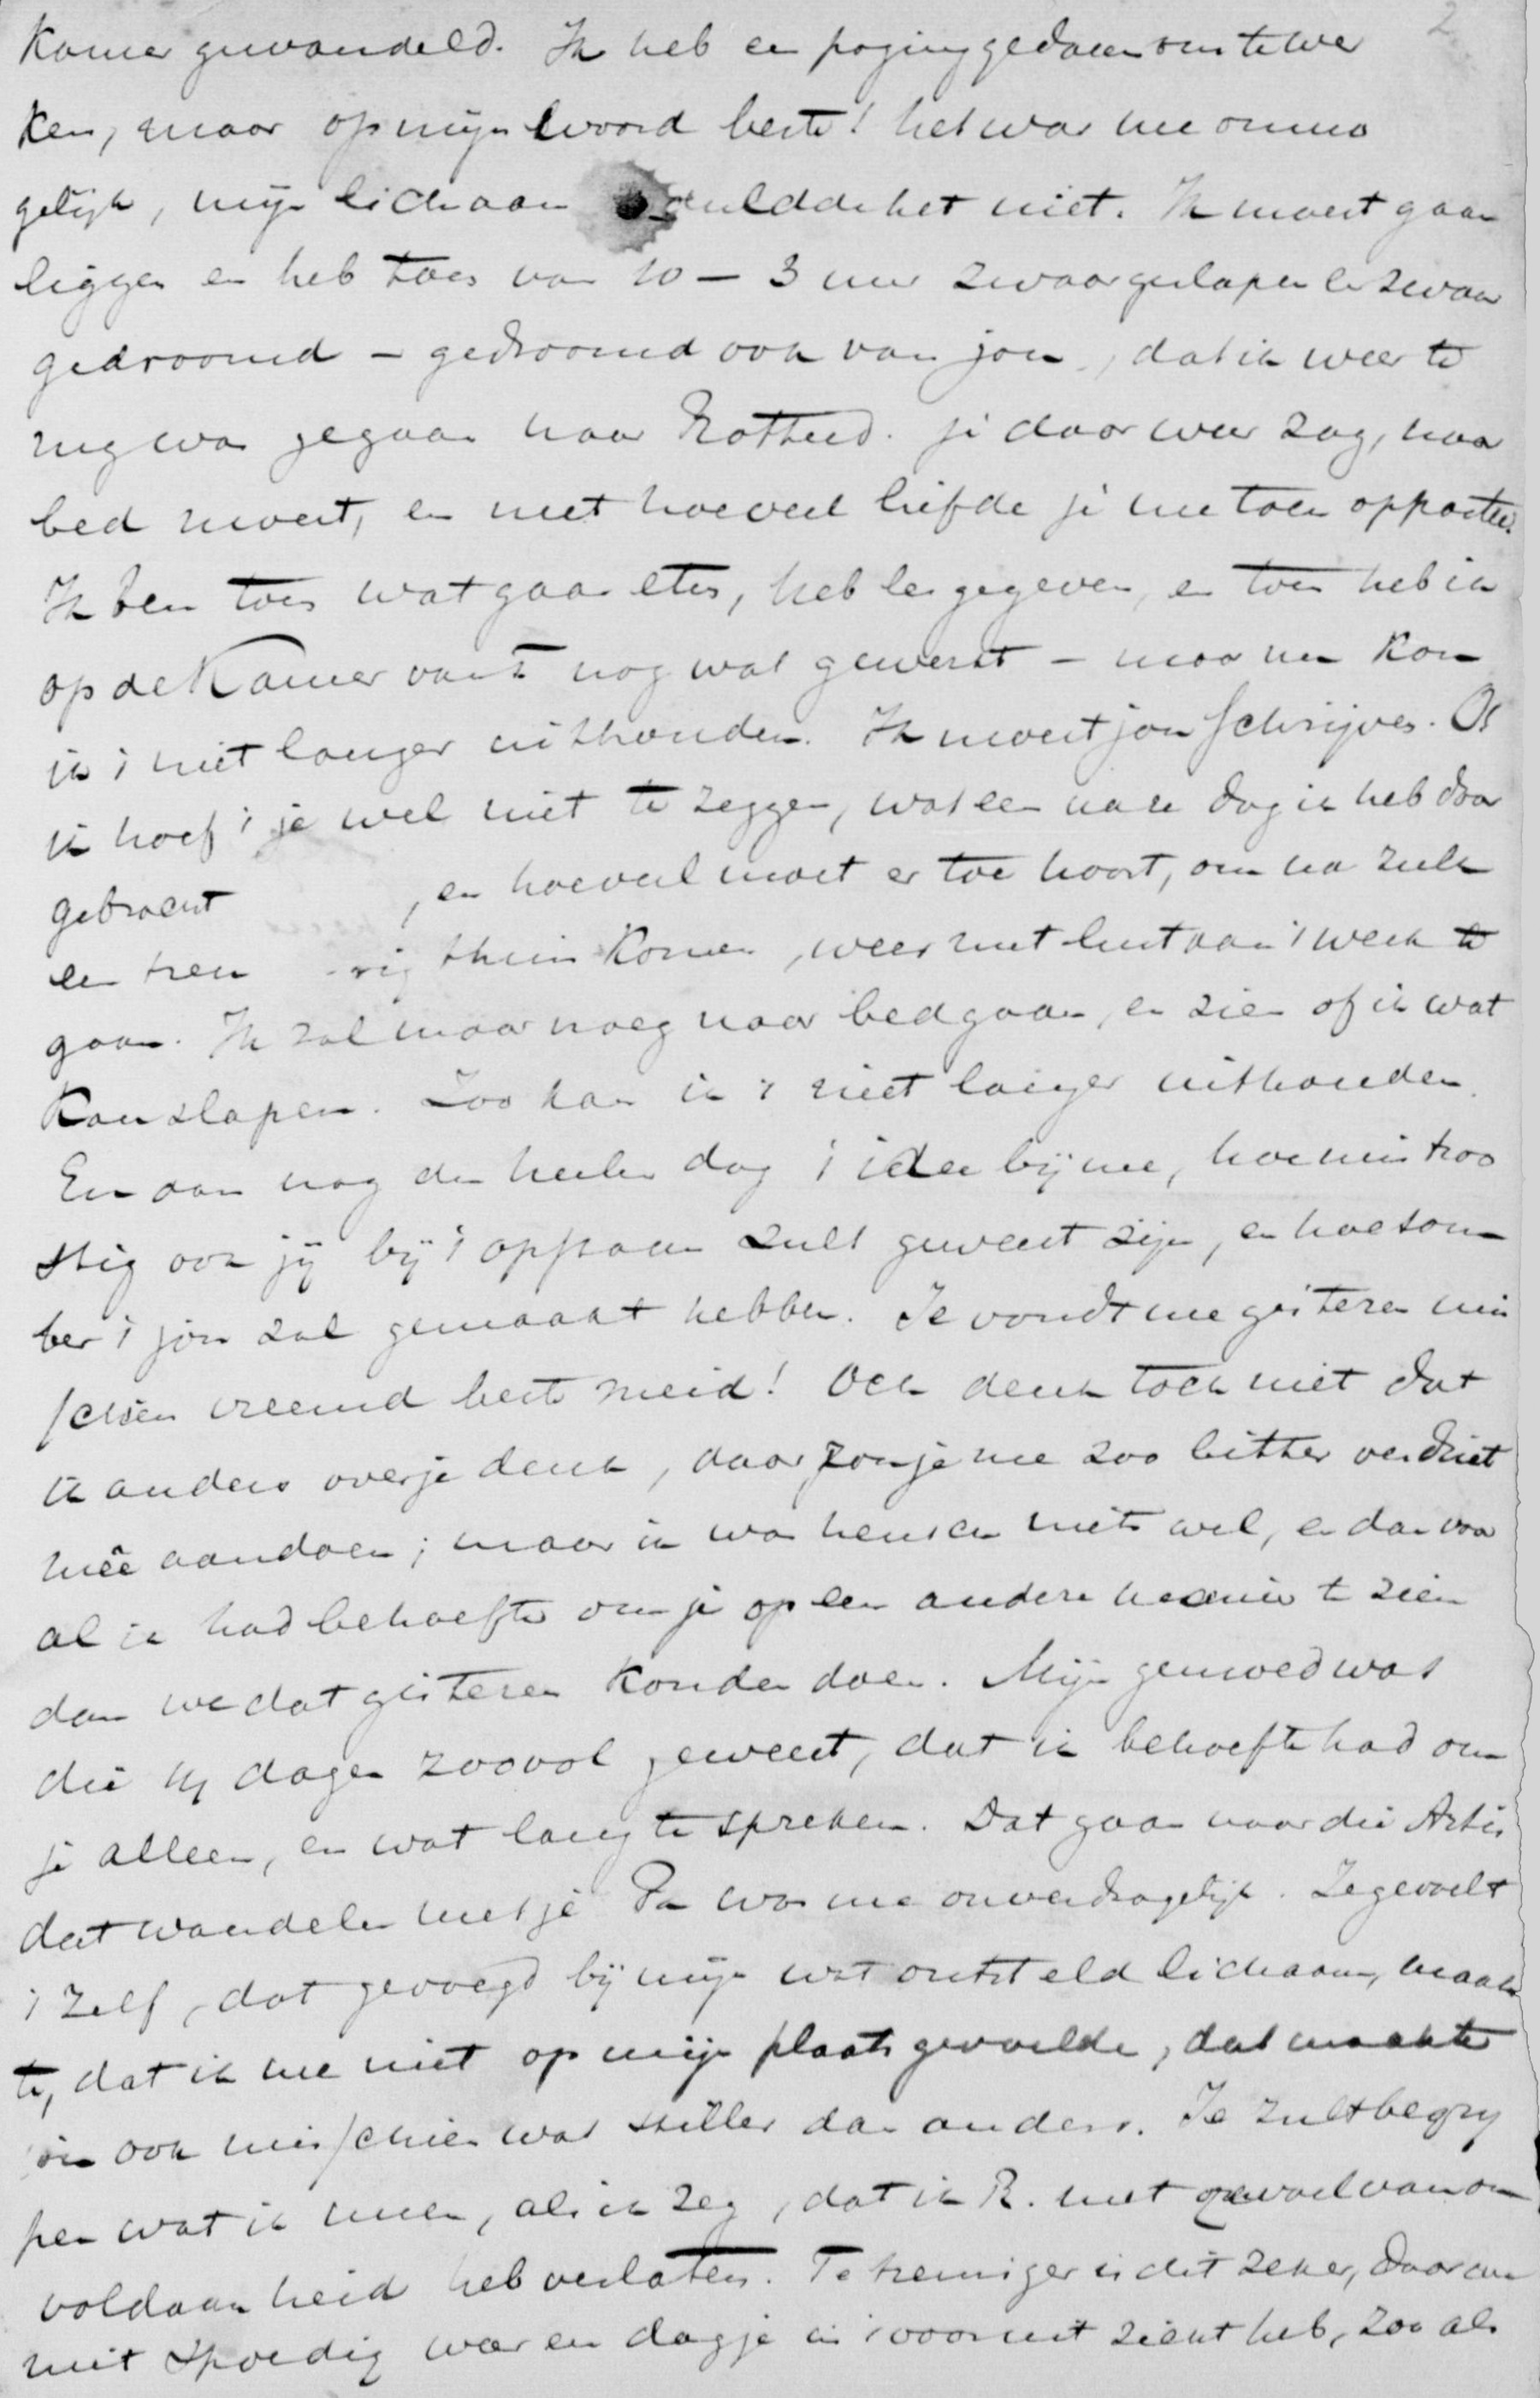 2
Kamer gewandeld. Ik heb een poging gedaan om te wer
ken, maar op mijn woord beste! het was me onmo
gelijk, mijn lichaam duldde het niet. Ik moest gaan
liggen en heb toen van 10 – 3 uur zwaar geslapen en zwaar
gedroomd – gedroomd ook van jou, dat ik weer te
rug was gegaan naar Rotterd. je daar weer zag, naar
bed moest, en met hoeveel liefde je me toen oppaste.
Ik ben toen wat gaan eten, heb les gegeven, en toen heb ik
op de Kamer van nog wat gewerkt – maar nu kon
ik 't niet langer uithouden. Ik moest jou schrijven. O!
ik hoef 't je wel niet te zeggen, wat een nare dag ik heb door
gebracht , en hoeveel moet er toe hoort, om na zulk
een treu rig thuis komen, weer met lust aan 't werk te
gaan. Ik zal maar vroeg naar bed gaan, en zien of ik wat
kan slapen. Zoo kan ik 't niet langer uithouden.
En dan nog den heelen dag 't idee bij me, hoe min troo
stig ook jij bij 't opstaan zult geweest zijn, en hoe som
ber 't jou zal gemaakt hebben. Je vondt me gisteren mis
schien vreemd beste meid! Och denk toch niet dat
ik anders over je denk, daar zou je me zoo bitter verdriet
meê aandoen; maar ik was heusch niets wel, en dan voor
al ik had behoefte om je op een andere manier te zien
dan we dat gisteren konden doen. Mijn gemoed was
die 14 dagen zoo vol geweest, dat ik behoefte had om
je alleen, en wat lang te spreken. Dat gaan naar die Artis
dat wandelen met je Pa was me onverdragelijk. Je gevoelt
't zelf, dat gevoegd bij mijn wat ontsteld lichaam, maak
te, dat ik me niet op mijn plaats gevoelde, dat maakte
me ook misschien wat stiller dan anders. Je zult begrij
pen wat ik meen, als ik zeg, dat ik R. met gevoel van on
voldaanheid heb verlaten. Te treuriger is dit zeker, daar ik
niet spoedig weer een dagje in 't vooruitzicht heb, zoo als